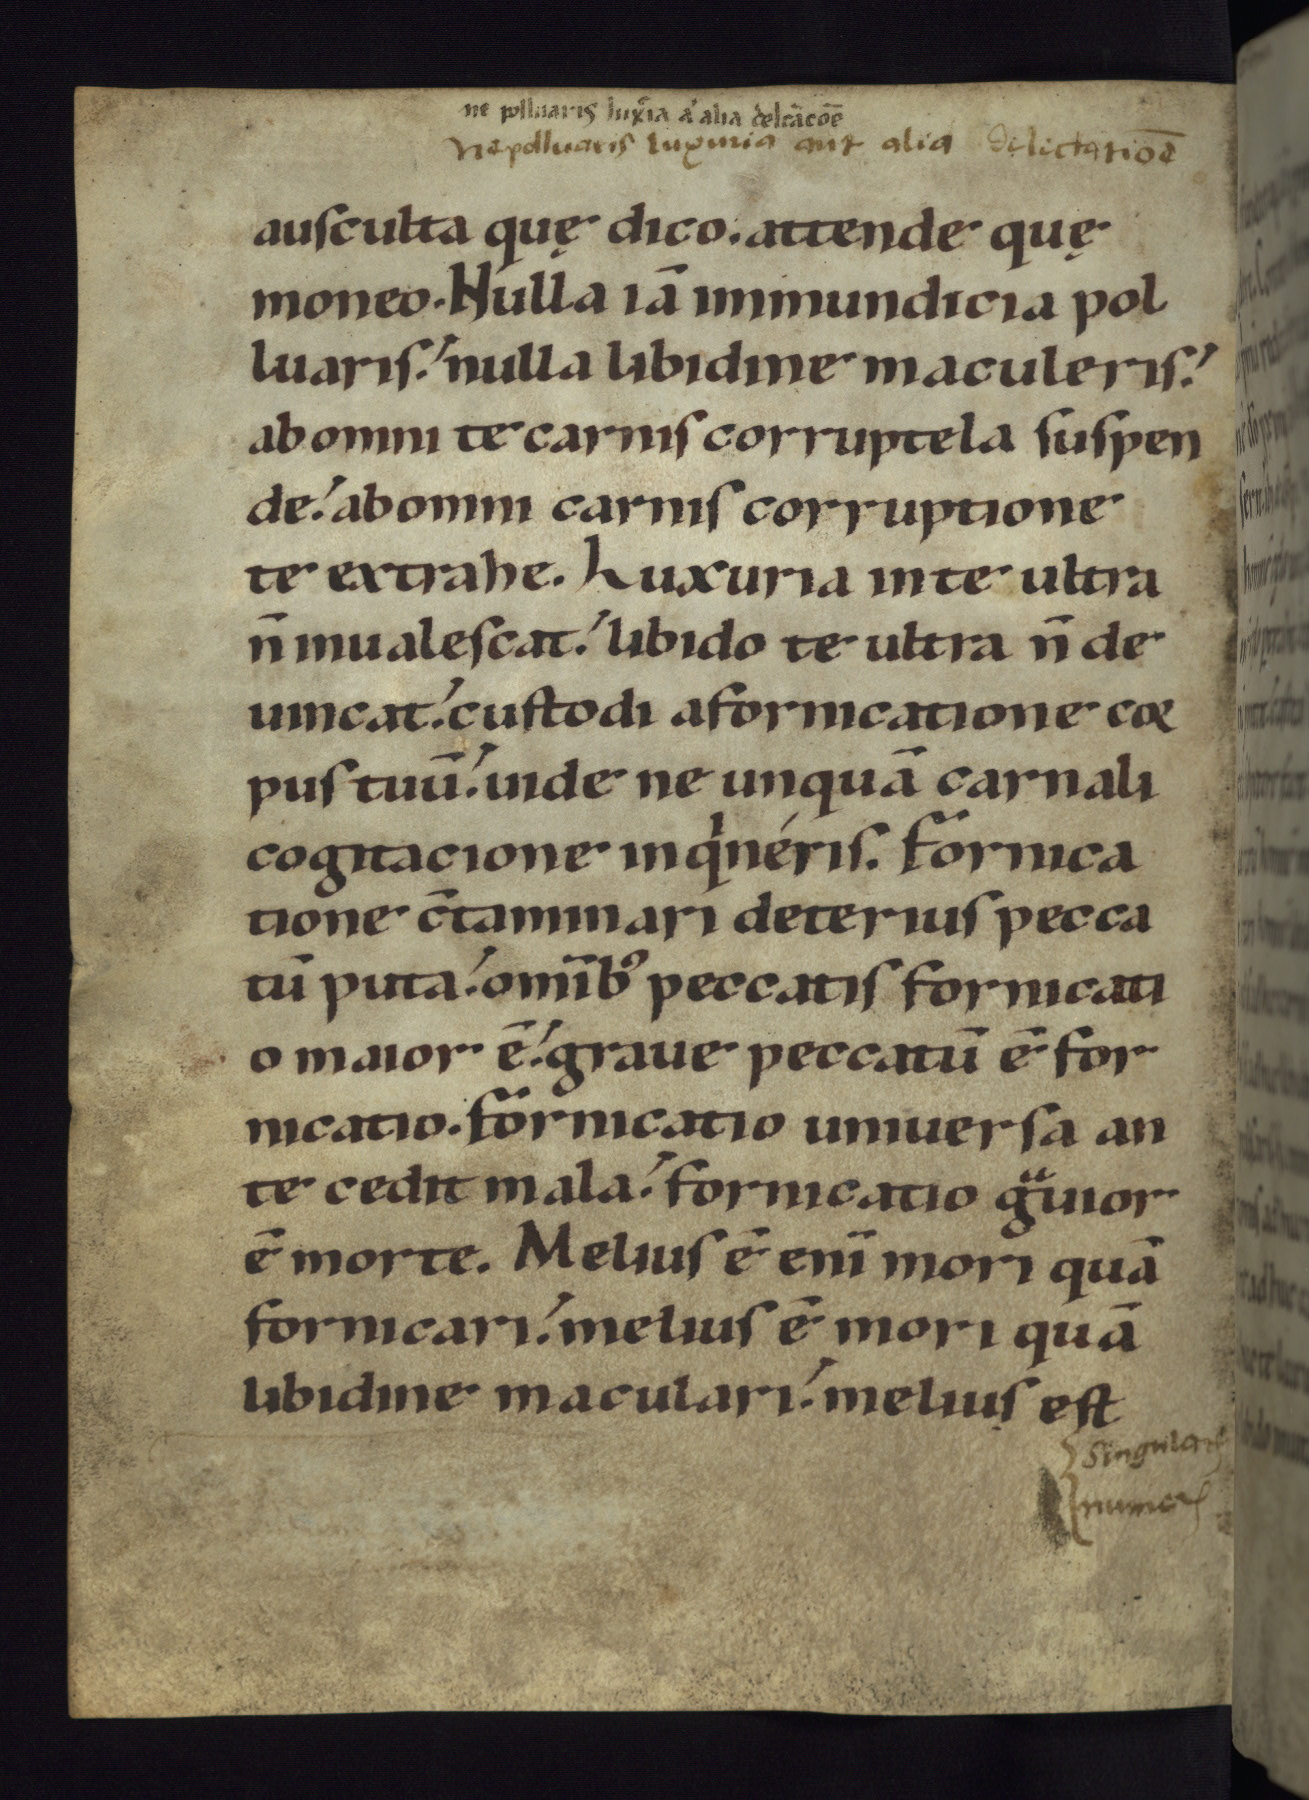 ne polluaris luxĩa a' alia delcãcõe
ne polluaris luxuria aut alia dilictatioē
ausculta quę dico. attende quę
moneo. Nulla iā immundicia pol
luaris. nulla libidine maculeris.
ab omni te carnis corruptela suspen
de. ab omni carnis corruptione
te extrahe. Luxuria in te ultra
n̄ inualescat. libido te ultra n̄ de
uincat. custodi a fornicatione cor
pus tuū. uide ne unquā carnali
cogitacione inqⁱneris. fornica
tione c̄taminari deterius pecca
tū puta. omīb; peccatis fornicati
o maior ē. graue peccatū ē for
nicatio. fornicatio uniuersa an
te cedit mala. fornicatio gͣuior
ē morte. Melius ē enī mori quā
fornicari. melius ē mori quā
libidine maculari. melius est
singularis